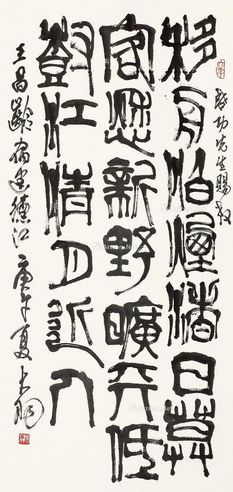 啓功先生賜教
移舟泊煙渚日莫
客愁新野曠天低
樹江清月近人
王昌齡宿建德江庚午夏大羽